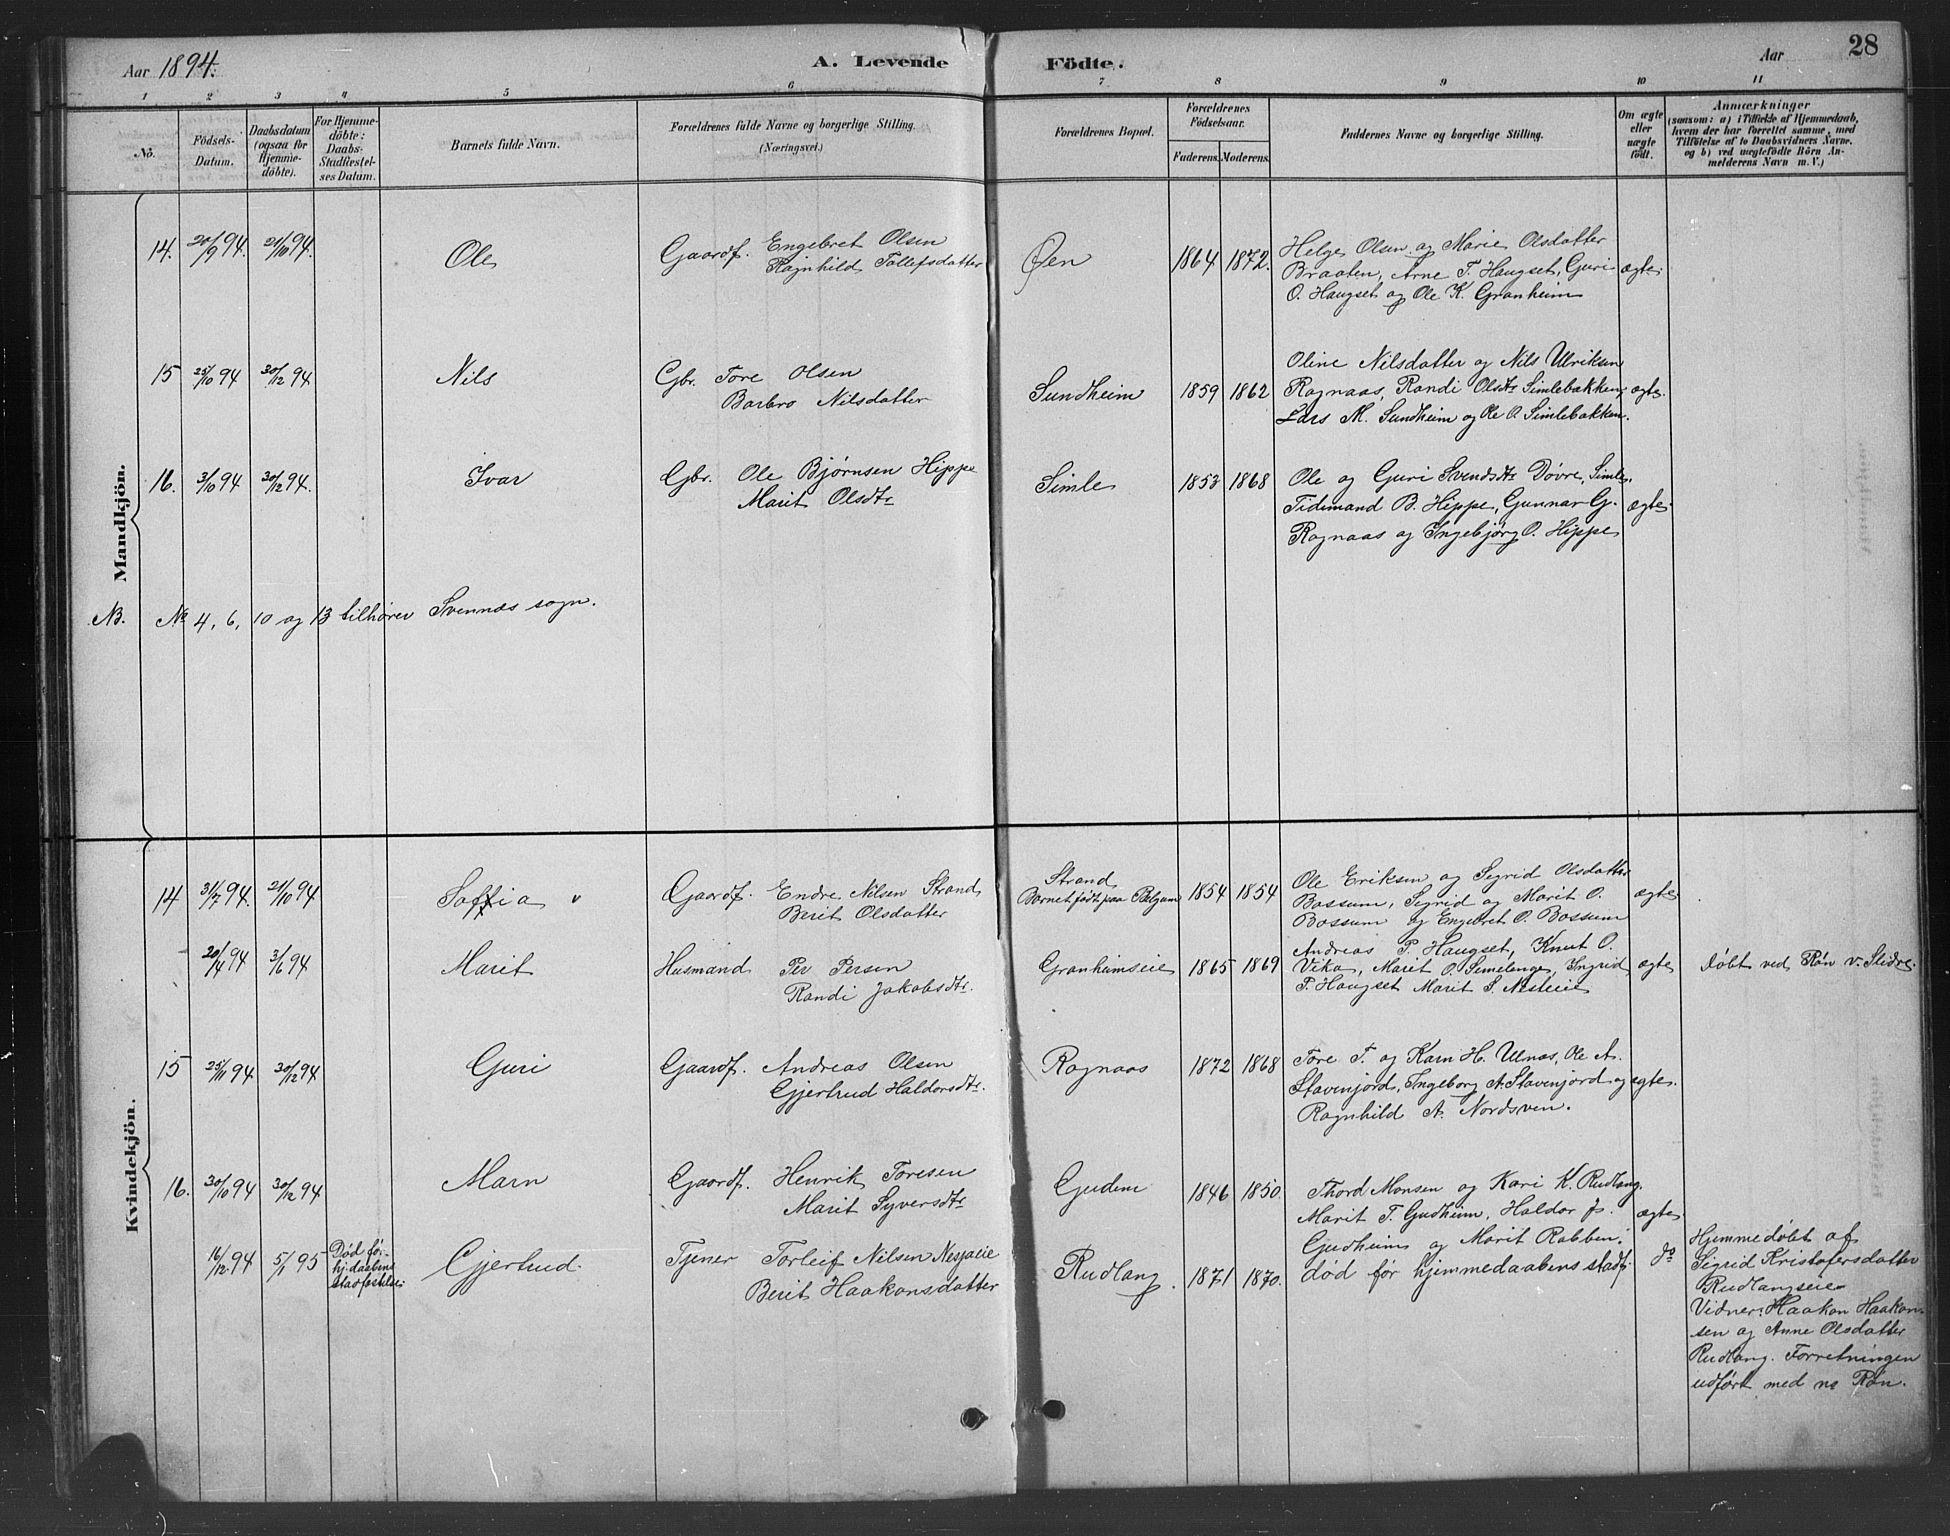 Aar 1894.
A. Levende Födte.
Aar
28
1 2 3 4 5 6 7 8 9 10 11
No.
Födsels-Datum.
Daabsdatum (ogsaa for Hjemme-döbte).
For Hjemme-döbte: Daabs-Stadfæstel-ses Datum.
Barnets fulde Navn.
Forældrenes fulde Navne og borgerlige Stilling.
(Næringsvei.)
Forældrenes Bopæl.
Forældrenes Födselsaar.
Faderens. Moderens.
Faddernes Navne og borgerlige Stilling.
Om ægte eller uægte födt.
Anmærkninger
(saasom: a) i Tilfælde af Hjemmedaab,
hvem der har forrettet samme, med
Tilföielse af to Daabsvidners Navne,
og b) ved uægtefödte Börn An-
melderens Navn m. V.)
Mandkjön.
14. 20/9 94. 21/10 94. Ole Gaardf. Engebret Olsen
Ragnhild Tollefsdatter
Øen 1864 1872.
Helge Olsen og Marie Olsdatter
Braaten, Arne T. Haugset, Guri
O. Haugset og Ole K. Granheim
ægte.
15 25/10 94 30/12 94 Nils Gbr. Tore Olsen
Barbro Nilsdatter
Sundheim 1859 1862
Oline Nilsdatter og Nils Ulriksen
Ragnaas, Randi Olsdtr Simlebakken,
Lars M. Sundheim og Ole O. Simlebakken.
ægte.
16. 3/10 94 30/12 94. Ivar Gbr. Ole Bjørnsen Hippe
Marit Olsdtr
Simle 1853 1868
Ole og Guri Svendsdtr Døvre, Simle,
Tidemand B. Hippe, Gunnar G.
Ragnaas og Ingebjørg O. Hippe
ægte.
NB. No 4, 6, 10 og 13 tilhører Svennæs sogn.
Kvindekjön.
14 31/7 94. 21/10 94 Soffia " Gaardf. Endre Nilsen Strand
Berit Olsdatter
Strand
Barnet født paa 1854 1854
Ole Eriksen og Sigrid Olsdatter
Bossum, Sigrid og Marit O.
Bossum og Engebret O. Bossum
ægte
20/4 94 3/6 94 Marit Husmand Per Persen
Randi Jakobsdtr.
Granheimseie 1865 1869
Andreas P. Haugset, Knut O.
Vika, Marit O. Simlenge, Ingrid
T. Haugset Marit S. Nesteie
ægte
døbt ved Røn v. Slidre.
15 25/11 94 30/12 94 Guri Gaardf. Andreas Olsen
Gjertrud Haldorsdtr.
Ragnaas 1872 1868
Tore T. og Karn H. Ulnæs, Ole A.
Stavenjord, Ingeborg A. Stavenjord og
Ragnhild A. Nordsven.
ægte.
16. 30/10 94 30/12 94 Marn Gaardf. Henrik Toresen
Marit Syversdtr
Gudem 1846 1850.
Thord Monsen og Kari K. Rudlang.
Marit T. Gudheim, Haldor Js.
Gudheim og Marit Rabben.
ægte
16/12 94 5/1 95 Død før
hj. daabens
stadfestelse.
Gjertrud. Tjener Torleif Nilsen Nesjaeie
Berit Haakonsdatter
Rudlang. 1871 1870.
død før hjemmedaabens stadf.
do
Hjemmedøbt af
Sigrid Kristofersdatter
Rudlangseie
Vidner: Haakon Haakon-
sen og Anne Olsdatter
Rudlang. Forretningen
udført med no Røn.